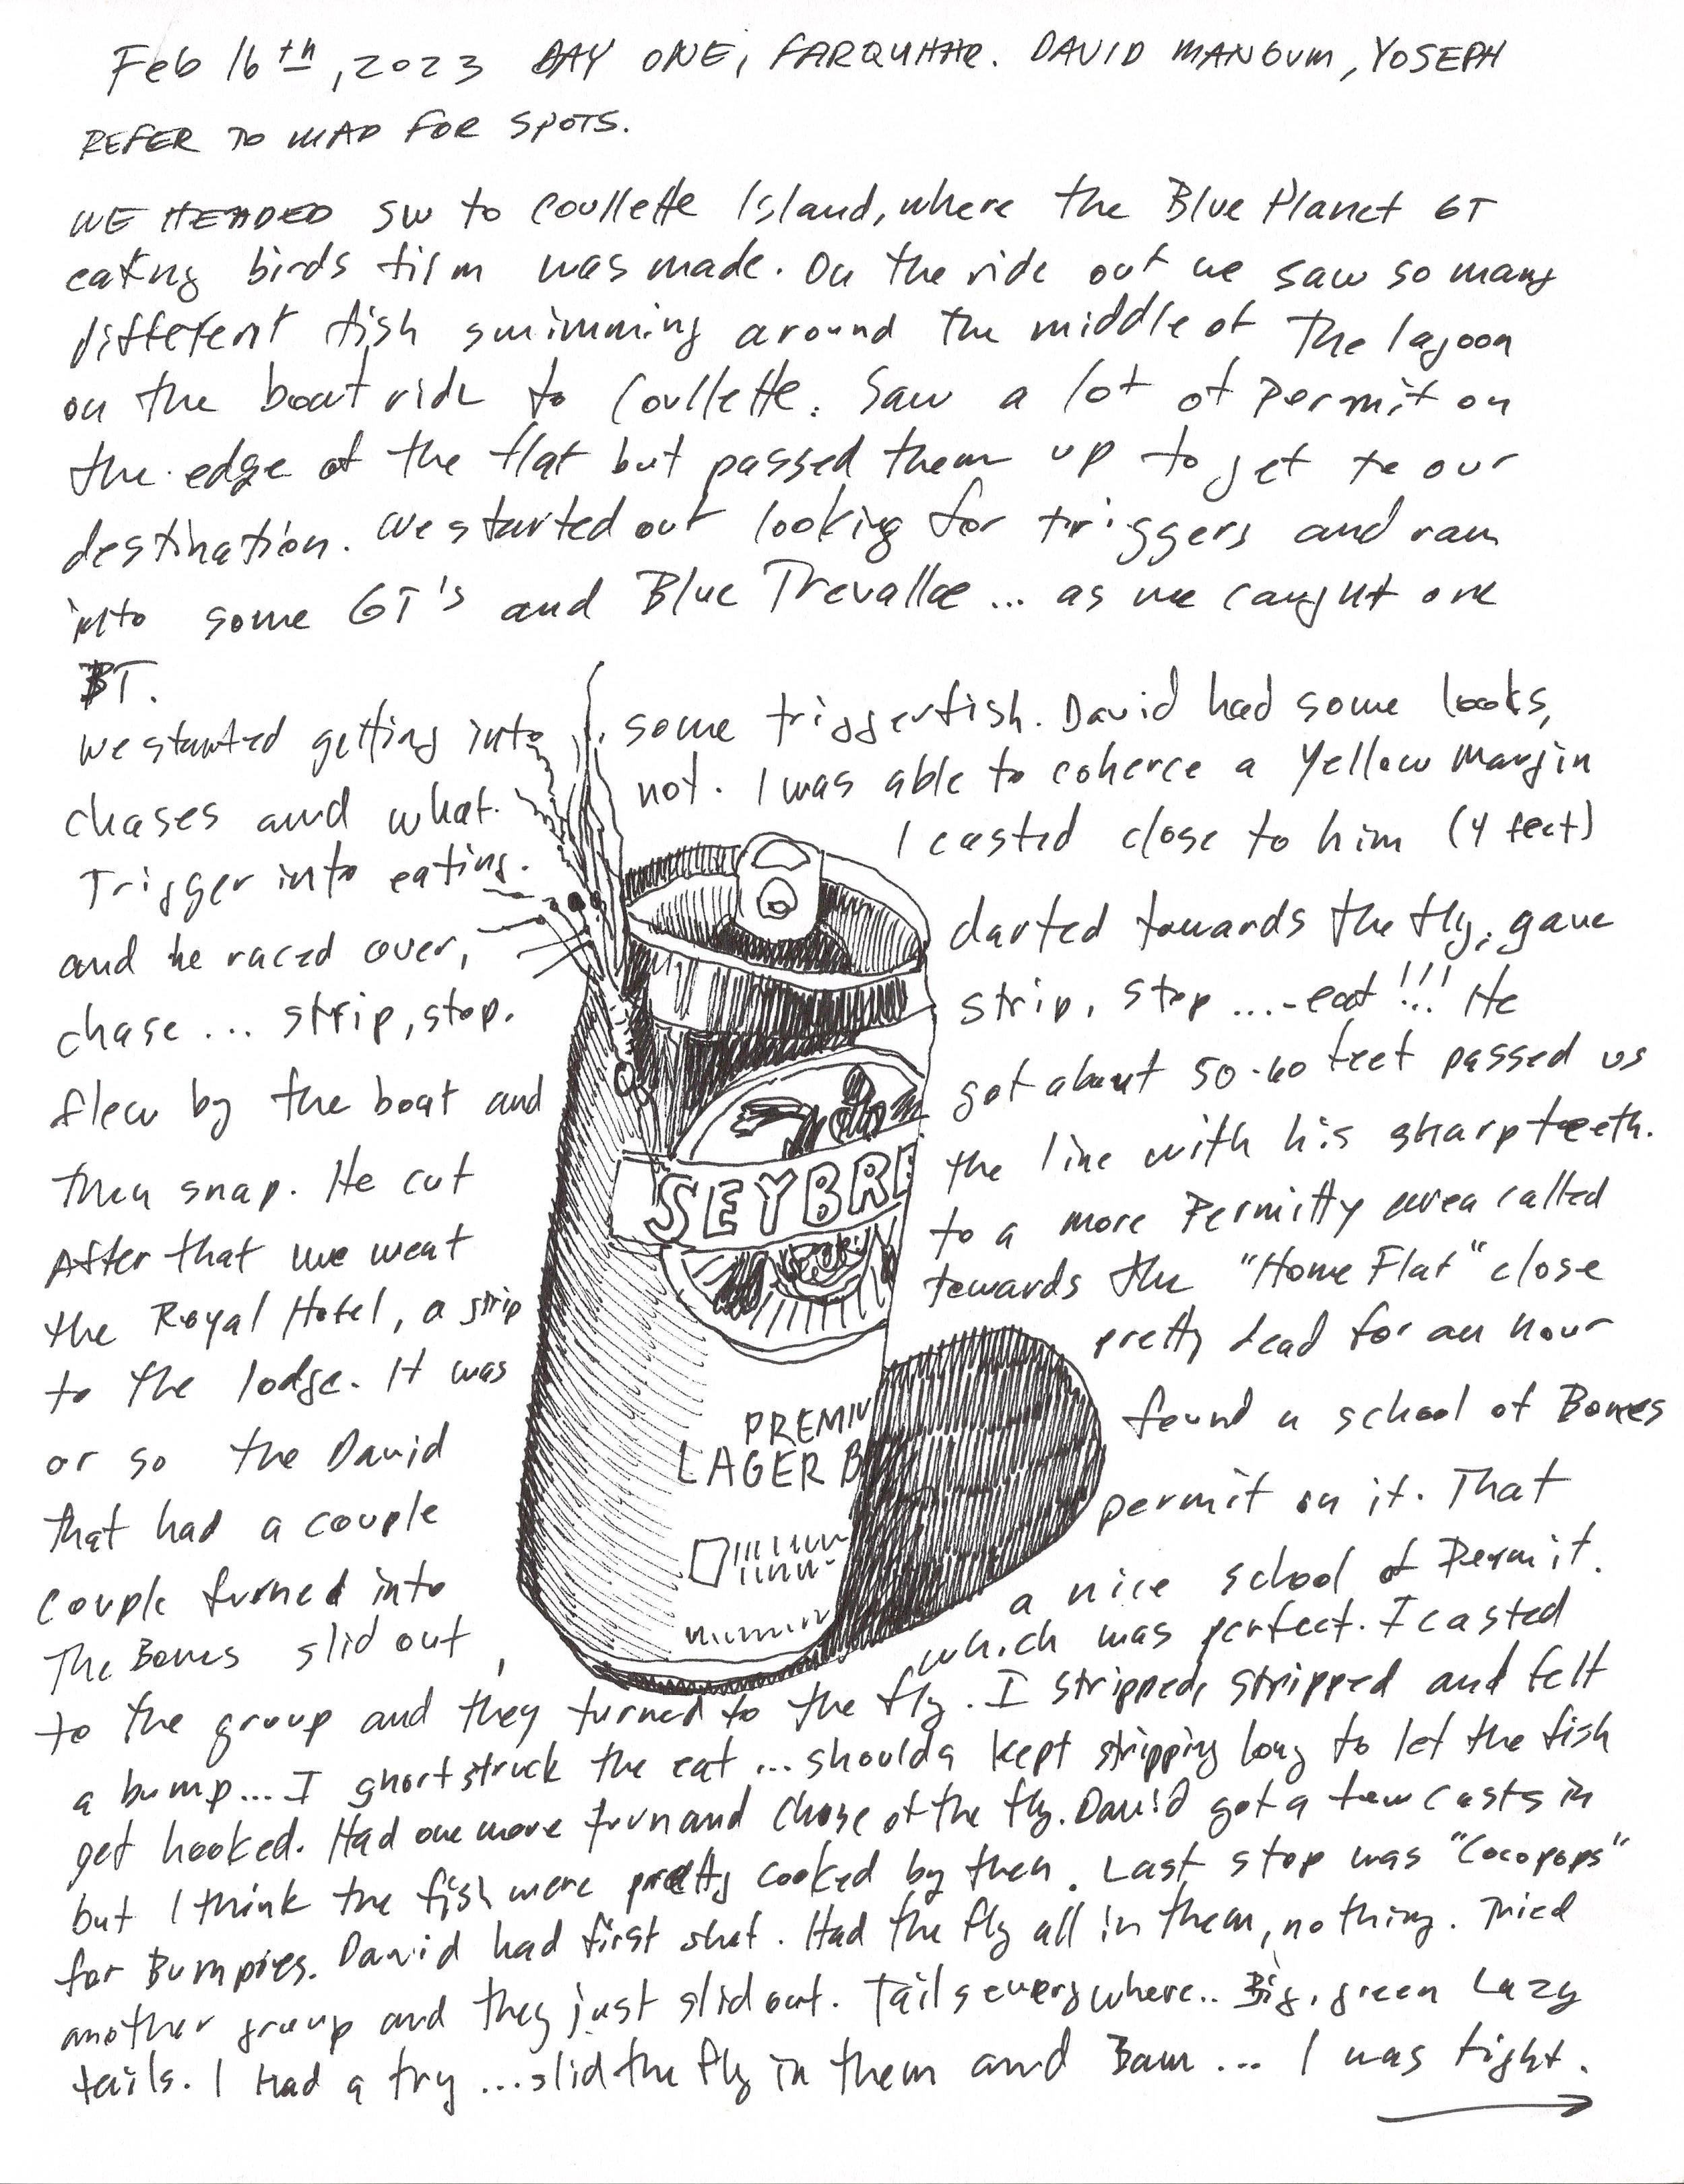 Feb 16th, 2023 DAY ONE, FARQUHAR. DAVID MANGUM, YOSEPH
REFER TO MAP FOR SPOTS.
WE HEADED SW to Coullette Island, where the Blue Planet GT
eating birds film was made. On the ride out we saw so many
different fish swimming around the middle of the lagoon
on the boat ride to Coullette. Saw a lot of Permit on
the edge of the flat but passed them up to get to our
destination. We started out looking for triggers and ran
into some GT's and Blue Trevallae ... as we caught one
BT.
We started getting into some triggerfish. David had some looks,
chases and what not. I was able to coherce a Yellow Margin
Trigger into eating. I casted close to him (4 feet)
and he raced over, darted towards the fly, gave
chase ... strip, stop. strip, stop ....-eat!!! He
flew by the boat and got about 50-60 feet passed us
then snap. He cut the line with his sharp teeth.
After that we went to a more Permitty area called
the Royal Hotel, a strip towards the "Home Flat" close
to the lodge. It was pretty dead for an hour
or so the David found a school of Bones
that had a couple permit on it. That
couple turned into a nice school of Permit.
The Bones slid out, which was perfect. I casted
to the group and they turned to the fly. I stripped, stripped and felt
a bump... I short struck the eat ... shoulda kept stripping long to let the fish
get hooked. Had one more turn and chase of the fly. David got a few casts in
but I think the fish were pretty cooked by then. Last stop was "Cocopops"
for Bumpies. David had first shot. Had the fly all in them, nothing. Tried
another group and they just slid out. Tails everywhere.. Big, green Lazy
tails. I had a try ... slid the fly in them and Bam ... I was tight.
SEYBR
PREMIU
LAGER B